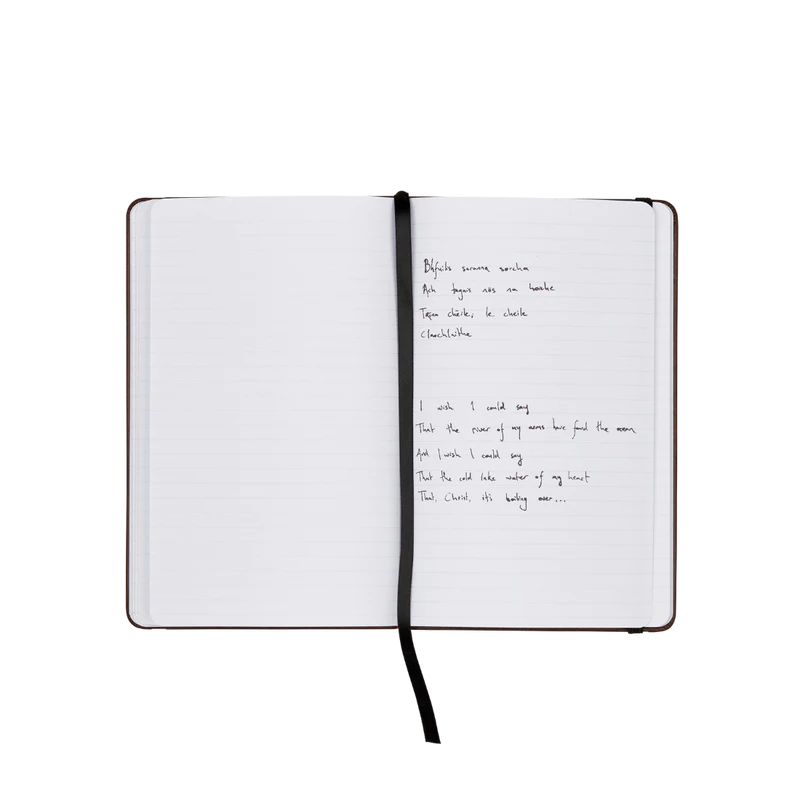 Bhfuilis soranna sorcha
Ach tagais nós na hoíche
Trína chéile, le chéile
Claochlaithe
I wish I could say
That the river of my arms have found the ocean
And I wish I could say
That the cold lake water of my heart
That, Christ, it's boiling over...